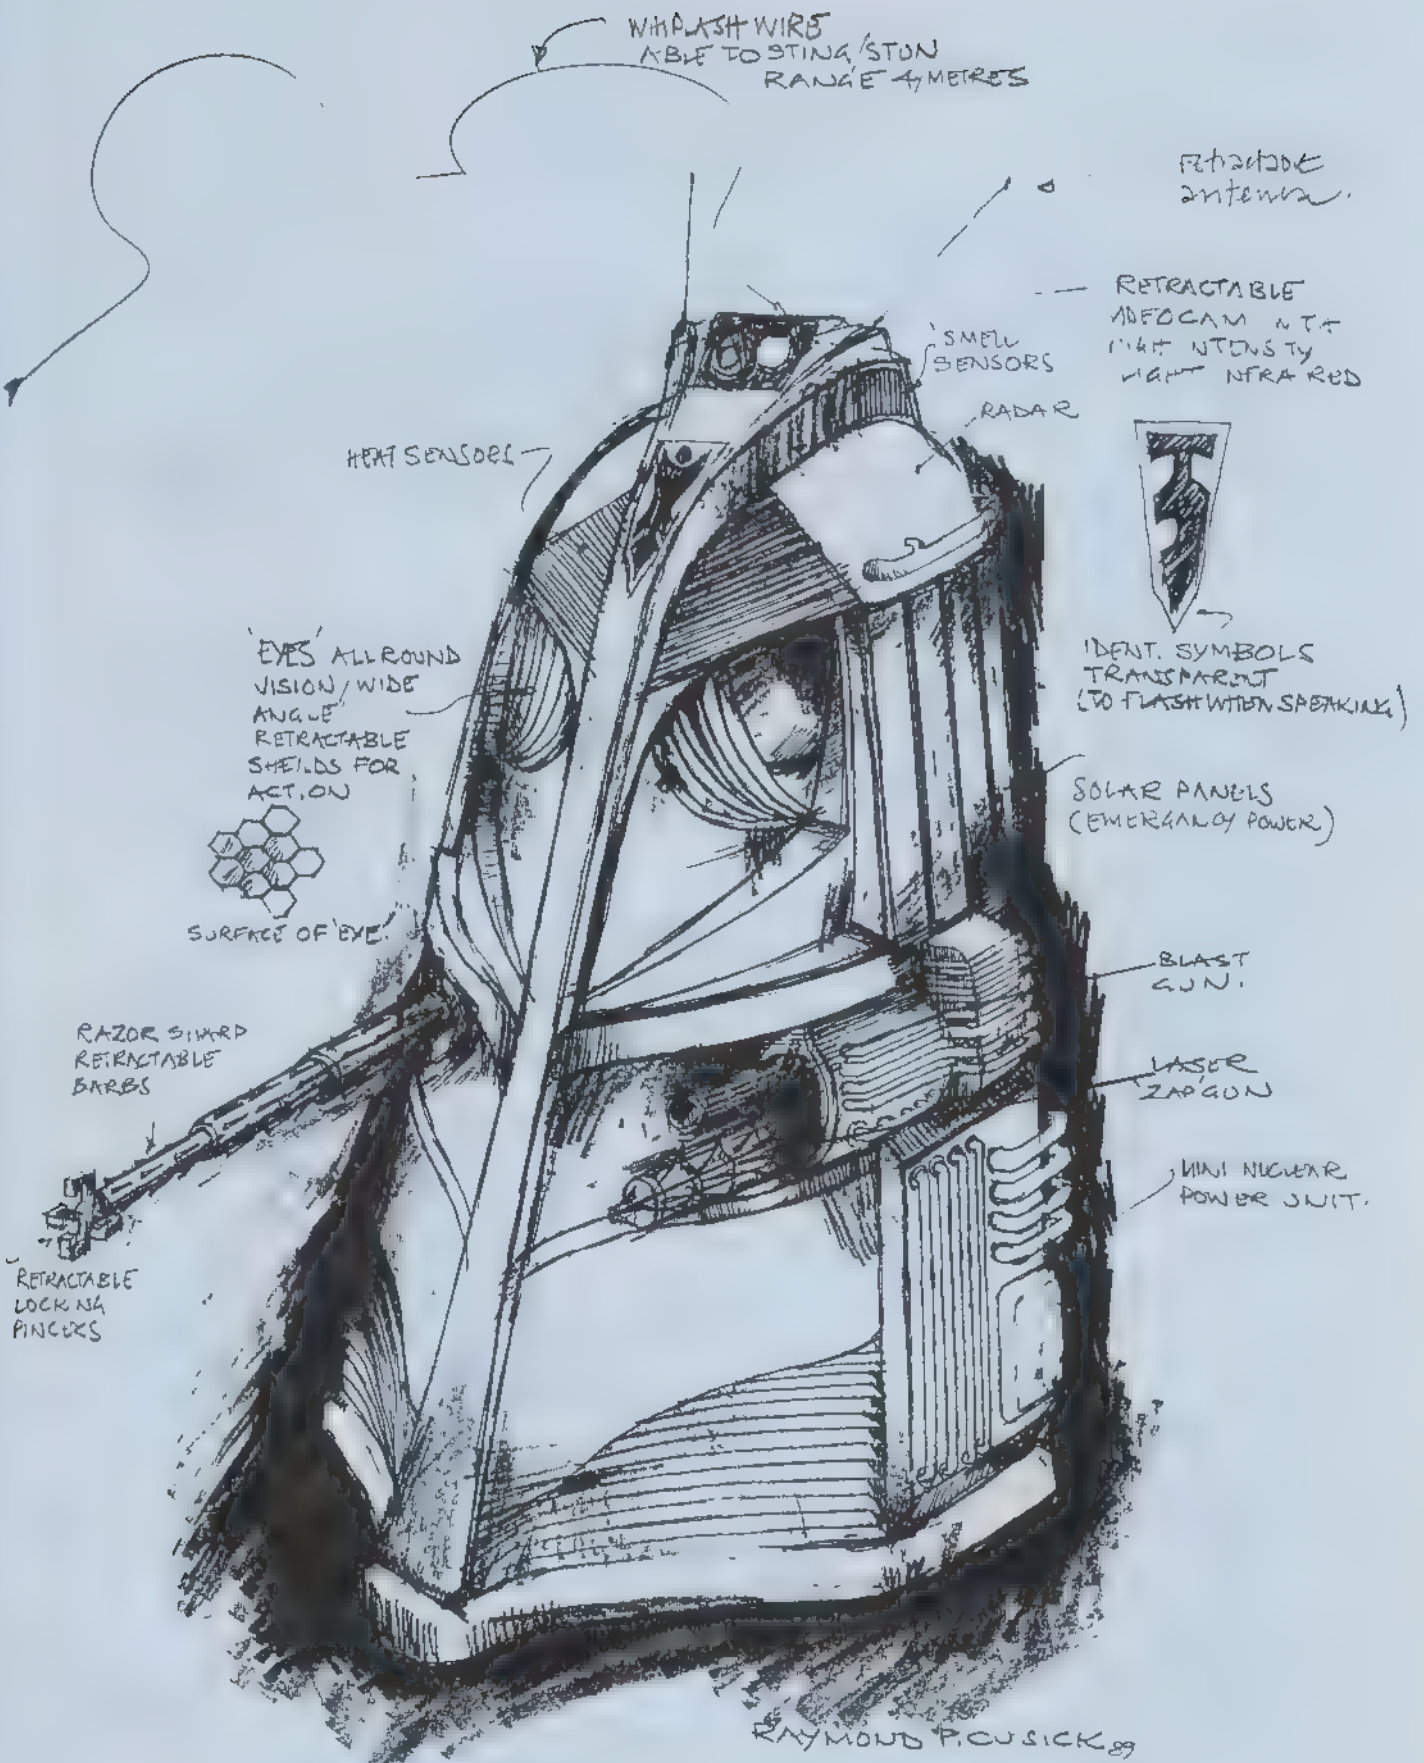 WHIPLASH WIRE
ABLE TO STING/STUN
RANGE 4 METRES
antenna.
RETRACTABLE
INTENSITY
LIGHT INFRA RED
'SMELL'
SENSORS
RADAR
HEAT SENSORS
'EYES' ALL ROUND
VISION/WIDE
ANGLE
RETRACTABLE
SHEILDS FOR
ACTION
SURFACE OF 'EYE'
IDENT. SYMBOLS
TRANSPARENT
(TO FLASH WHEN SPEAKING)
SOLAR PANELS
(EMERGANCY POWER)
BLAST
GUN.
LASER
'ZAP' GUN
RAZOR SHARP
RETRACTABLE
BARBS
MINI NUCLEAR
POWER UNIT.
RETRACTABLE
LOCKING
PINCERS
RAYMOND P. CUSICK 89